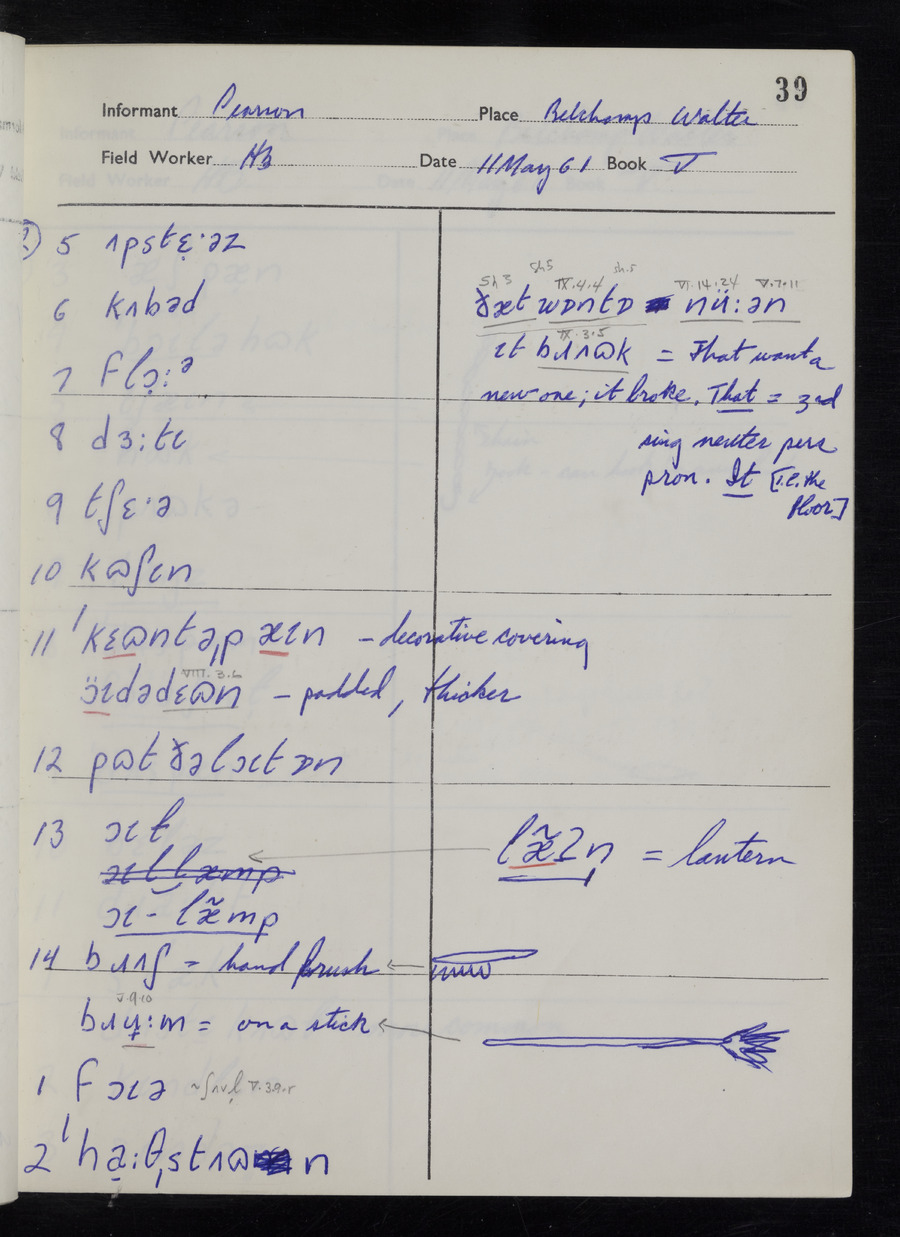 39
Informant Pearson Place Belchamp Walter
Field Worker HB Date 11 May 61 Book V
5 ʌpstɛ̣·əz
6 kʌbəd
7 flɔ̣:ə
8 dɜ:tɩ
9 tʃɛ·ə
10 kɷʃɩn
11 ˈkɛɷntəˌpæɩn – decorative covering
VIII. 3.6
ɔ̈ɩdədɛɷn – padded, thicker
12 pɷt ðəlɔɩt ɒn
13 ɔɩl
ɔɩl læmp
ɔɩ- læ̃mp
14 bɹʌʃ = hand brush
V.9.10
bɹʉ̣:m = on a stick
1 fɔɩə ~ʃʌvl̩ V.3.9.r
2 ˈhạ:θˌstʌɷn
Sh 3 Sh 5 IX.4.4 sh.5 VI.14.24 V.7.11
ðæt wɒntɒ nü:ən
IX.3.5
ɩt bɹʌɷk = That want a
new one; it broke. That = 3rd
sing neuter pers
pron. It [I.e. the
floor]
læ̃ʔn = lantern